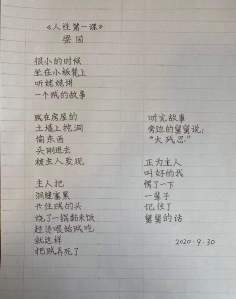 《人性第一课》
很小的时候
坐在小板凳上
听姥姥讲
一个贼的故事
贼在房屋的
土墙上挖洞
偷东西
头刚进去
被主人发现
主人把
洞缝塞紧
夹住贼的头
烧了一锅黏米饭
趁烫喂给贼吃
就这样
把贼弄死了
听完故事
旁边的舅舅说：
“太残忍”
正为主人
叫好的我
愣了一下
一辈子
记住了
舅舅的话
2020.9.30